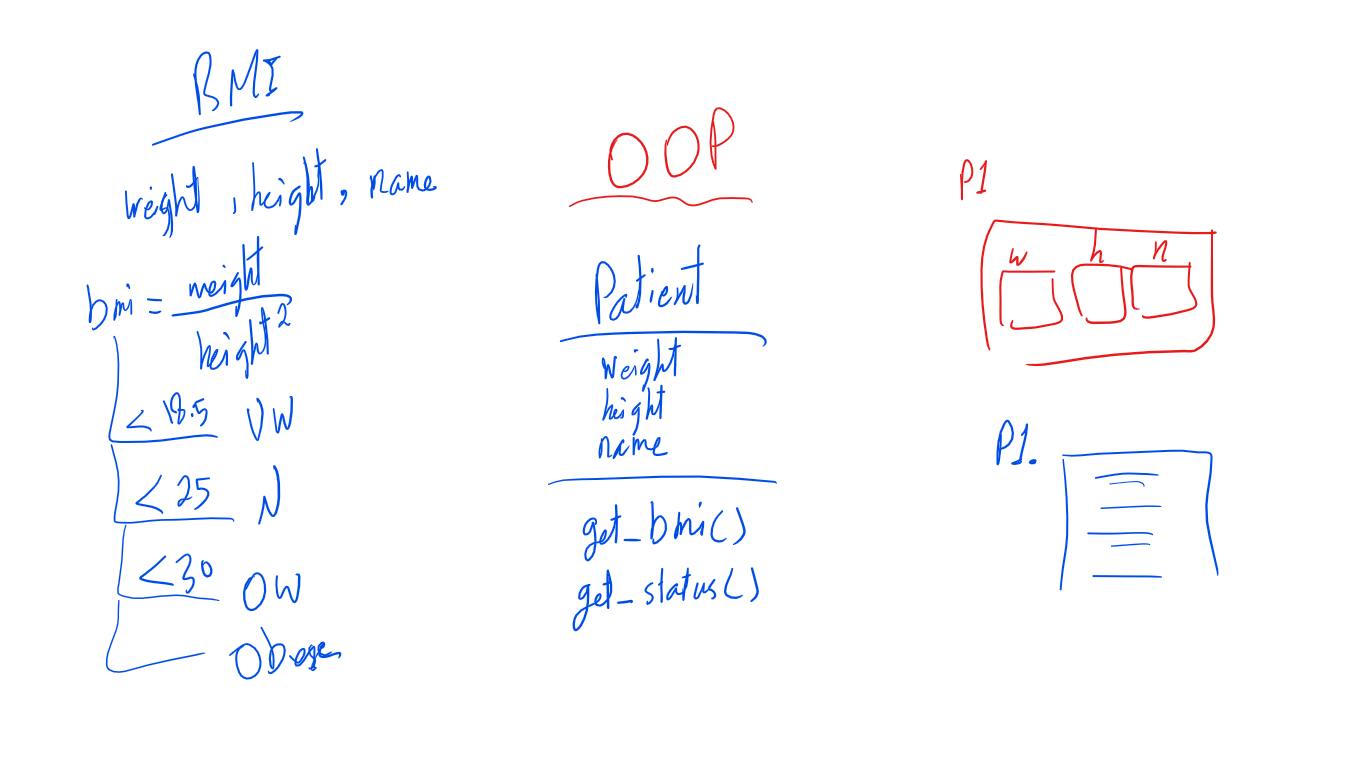 BMI
weight, height, name
bmi = weight
height²
< 18.5 UW
< 25 N
< 30 OW
Obese
OOP
Patient
weight
height
name
get_bmi()
get_status()
P1
w h n
P1.